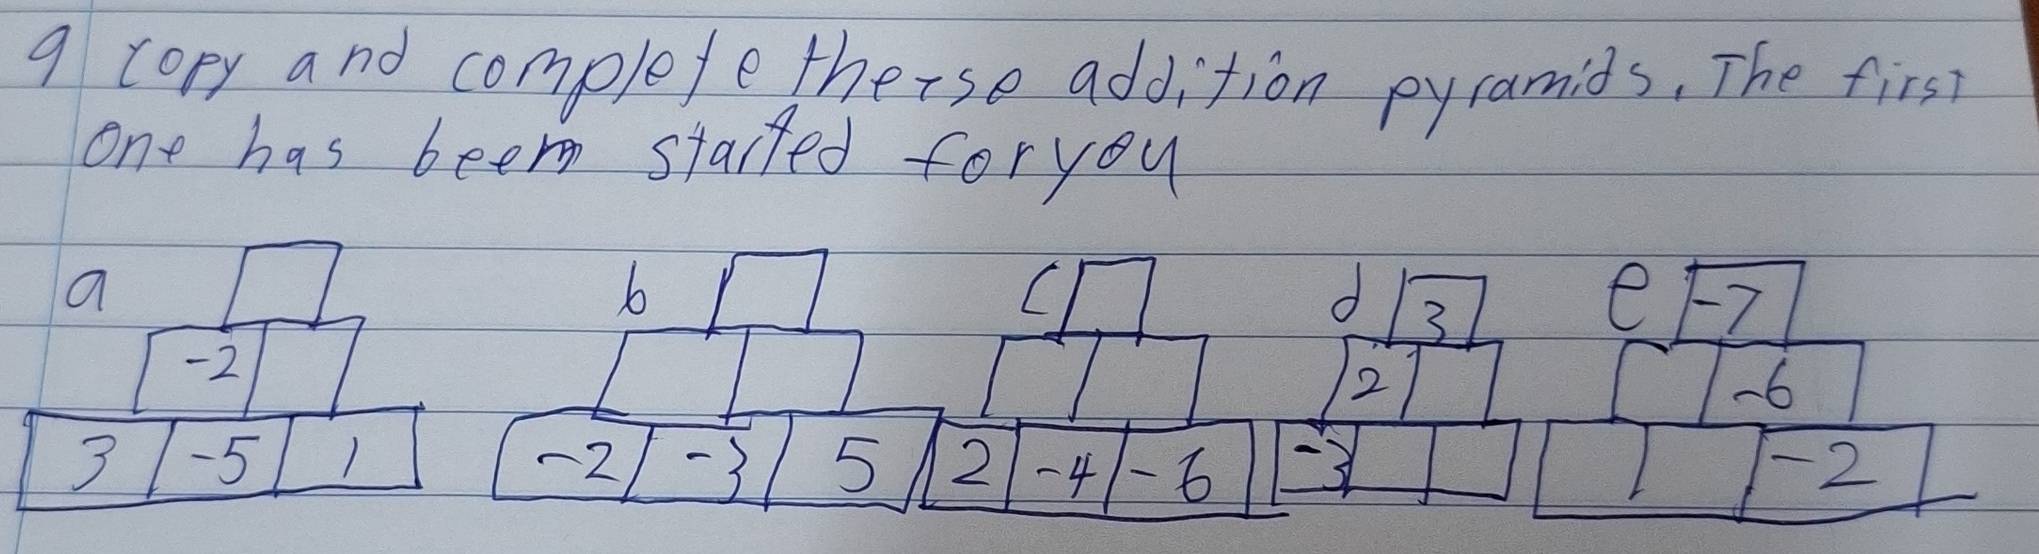 9 copy and complete therse addition pyramids. The first
one has beem started for you
a b c d 3 e -7
-2 2 -6
3 -5 1 -2 -3 5 2 -4 -6 -3 -2